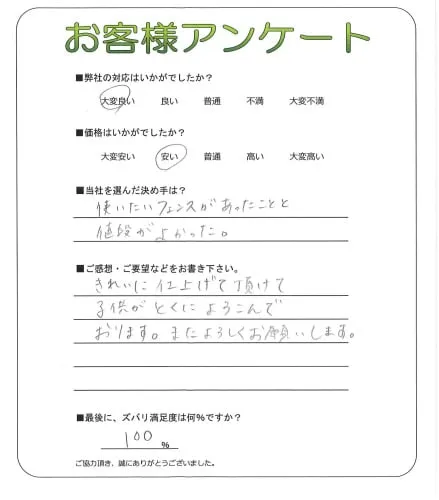 お客様アンケート
■弊社の対応はいかがでしたか?
大変良い 良い 普通 不満 大変不満
■価格はいかがでしたか?
大変安い 安い 普通 高い 大変高い
■当社を選んだ決め手は?
使いたいフェンスがあったことと
値段がよかった。
■ご感想・ご要望などをお書き下さい。
きれいに仕上げて頂けて
子供がとくによろこんで
おります。またよろしくお願いします。
■最後に、ズバリ満足度は何%ですか?
100 %
ご協力頂き、誠にありがとうございました。